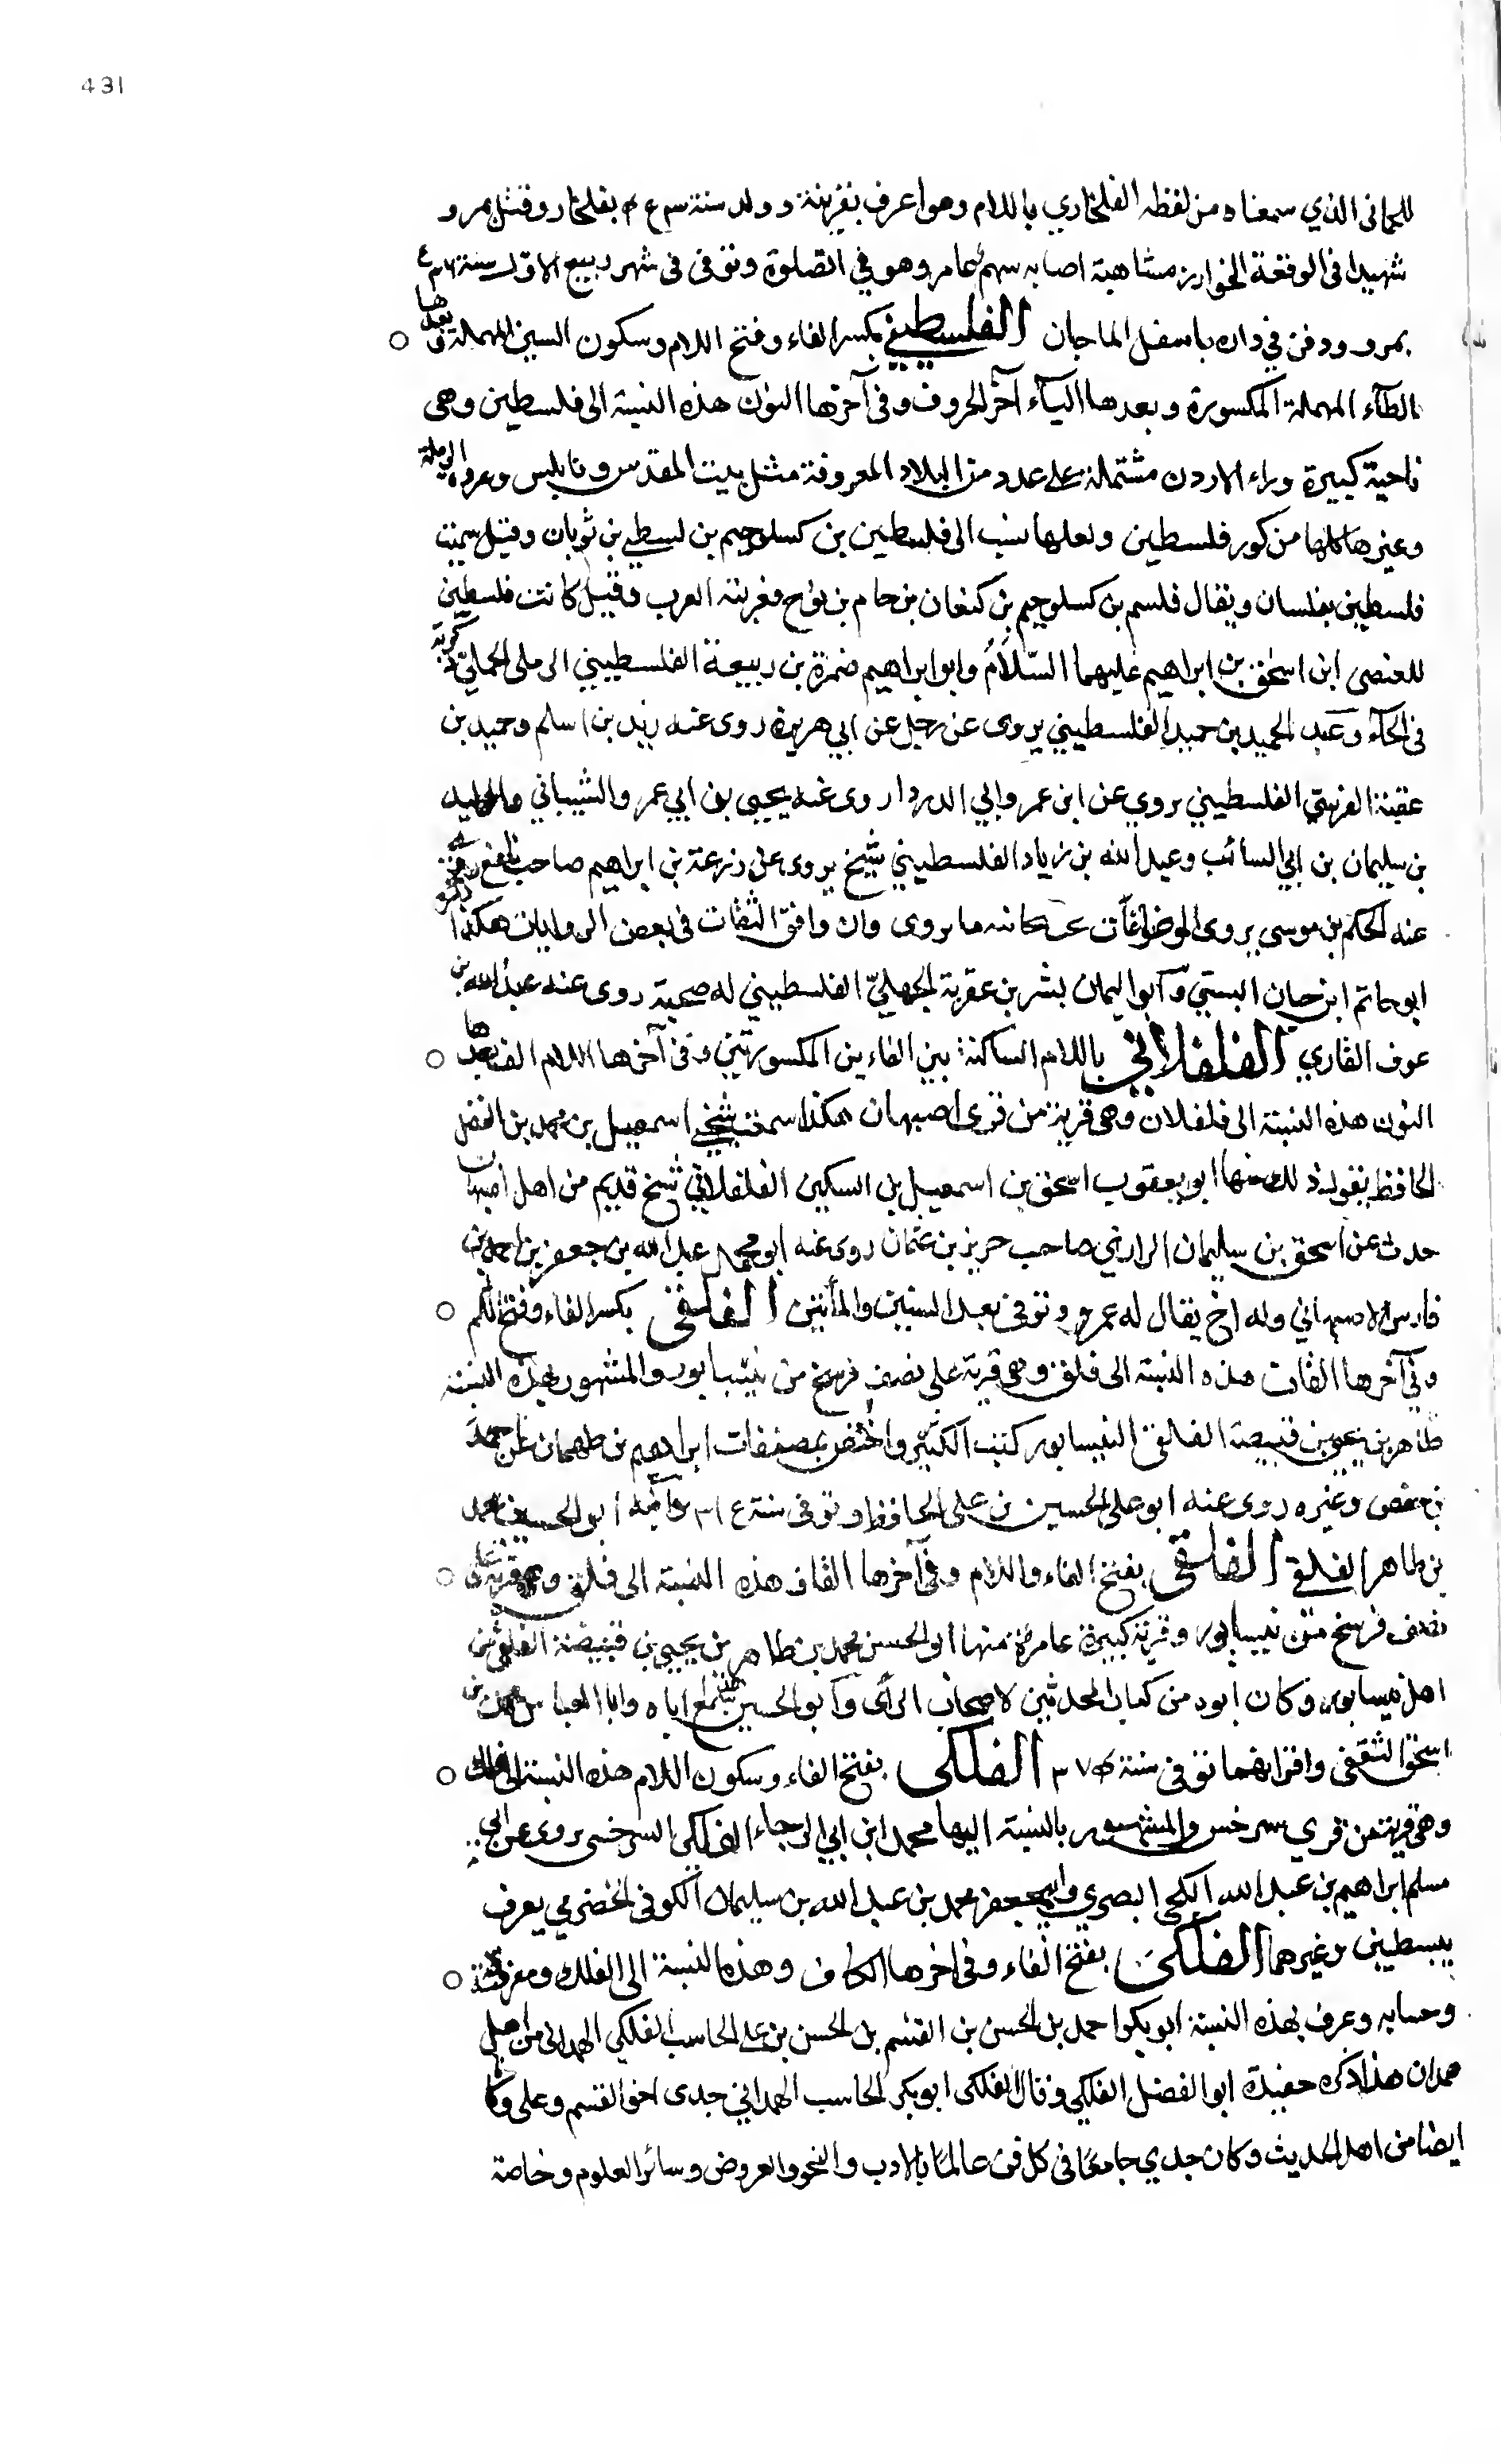 431
اللجماني الذي سمعناه من لفظه الفلخاري باللام وهو اعرف بقريته وولد سنة بفلخار وقتل بمرو
شهيدا في الوقعة الخوارزمشاهية اصابه سهم وهو في الصلوة وتوفي في شهر ربيع الاول سنة
بمرو ودفن في داره باسفل الماجان الفلسطيني بكسر الفاء وفتح اللام وسكون السين المهملة وبعدها
الطاء المهملة المكسورة وبعدها الياء آخر الحروف وفي آخرها النون هذه النسبة الى فلسطين وهي
ناحية كبيرة وراء الاردن مشتملة على عدد من البلاد المعروفة مثل بيت المقدس ونابلس والرملة
وغيرها كلها من كور فلسطين ولعلها نسب الى فلسطين بن كسلوجيم بن لسطي بن ثوبان وقيل سميت
فلسطين بفلسان ويقال فلسم بن كسلوجيم بن كنعان بن حام بن نوح فغربته العرب وقيل كانت فلسطين
للعنصى ابن اسحق بن ابراهيم عليهما السلام وابو ابراهيم ضمرة بن ربيعة الفلسطيني الرملي
في الحاء وعبد الحميد بن حميد الفلسطيني يروى عن رجل عن ابي هريرة روى عنه زيد بن اسلم وحميد بن
عقبة القرشي الفلسطيني يروي عن ابن عمر وابي الدردا روى عنه يحيى بن ابي عمرو الشيباني والوليد
بن سليمان بن ابي السائب وعبد الله بن زياد الفلسطيني شيخ يروى عن زرعة بن ابراهيم صاحب نافع
عنه الحكم بن موسى يروى الموضوعات ما يروى وان وافق الثقات في بعض الروايات هكذا ذكره
ابو حاتم ابن حبان البستي وابو اليمان بشر بن عقربة الجهني الفلسطيني له صحبة روى عنه عبد الله بن
عوف القاري الفلفلاني باللام الساكنة بين الفاءين المكسورتين وفي آخرها اللام الف بعدها
النون هذه النسبة الى فلفلان وهي قرية من قرى اصبهان هكذا سمعت شيخي اسمعيل بن محمد بن الفضل
الحافظ يقول ذلك منها ابو يعقوب اسحق بن اسمعيل بن السكين الفلفلاني شيخ قديم من اهل اصبهان
حدث عن اسحق بن سليمان الرازي صاحب حريز بن عثمان روى عنه ابو محمد عبد الله بن جعفر بن احمد بن
فارس الاصبهاني وله اخ يقال له عمرو وتوفي بعد الستين والمأتين الفلقي بكسر الفاء وفتح اللام
وفي آخرها القاف هذه النسبة الى فلق وهي قرية على نصف فرسخ من نيسابور والمشهور بهذه النسبة
طاهر بن يحيى بن قبيصة الفلقي النيسابور كتب الكثير واختص بمصنفات ابراهيم بن طهمان عن احمد
بن حفص وغيره روى عنه ابو علي الحسين بن علي الحافظ وتوفي سنة وابنه ابو الحسين محمد
بن طاهر الفلقي الفلقي بفتح الفاء واللام وفي آخرها القاف هذه النسبة الى فلق وهي قرية على
نصف فرسخ من نيسابور وقرية كبيرة عامرة منها ابو الحسن محمد بن طاهر بن يحيى بن قبيصة الفلقي من
اهل نيسابور وكان ابوه من كبار المحدثين لاصحاب الرأى وابو الحسين سمع اباه وابا العباس محمد بن
اسحق الثقفي واقرانهما توفي سنة الفلكي بفتح الفاء وسكون اللام هذه النسبة الى فلك
وهي قرية من قرى سرخس والمشهور بالنسبة اليها محمد ابن ابي الرجاء الفلكي السرخسي يروى عن ابي
مسلم ابراهيم بن عبد الله الكجى البصري وابي جعفر محمد بن عبد الله بن سليمان الكوفي الحضرمي يعرف
ببسطين وغيرهما الفلكي بفتح الفاء وفي اخرها الكاف وهذه النسبة الى الفلك ومعرفته
وحسابه وعرف بهذه النسبة ابو بكر احمد بن الحسن بن القسم بن الحسن بن علي الحاسب الفلكي الهمداني من اهل
همدان هذا ذكره حفيده ابو الفضل الفلكي وقال الفلكى ابو بكر الحاسب الهمداني جدى اخو القسم وعلى وكانا
ايضا من اهل الحديث وكان جدي جامعا في كل فن عالما بالادب والنحو والعروض وسائر العلوم وخاصة